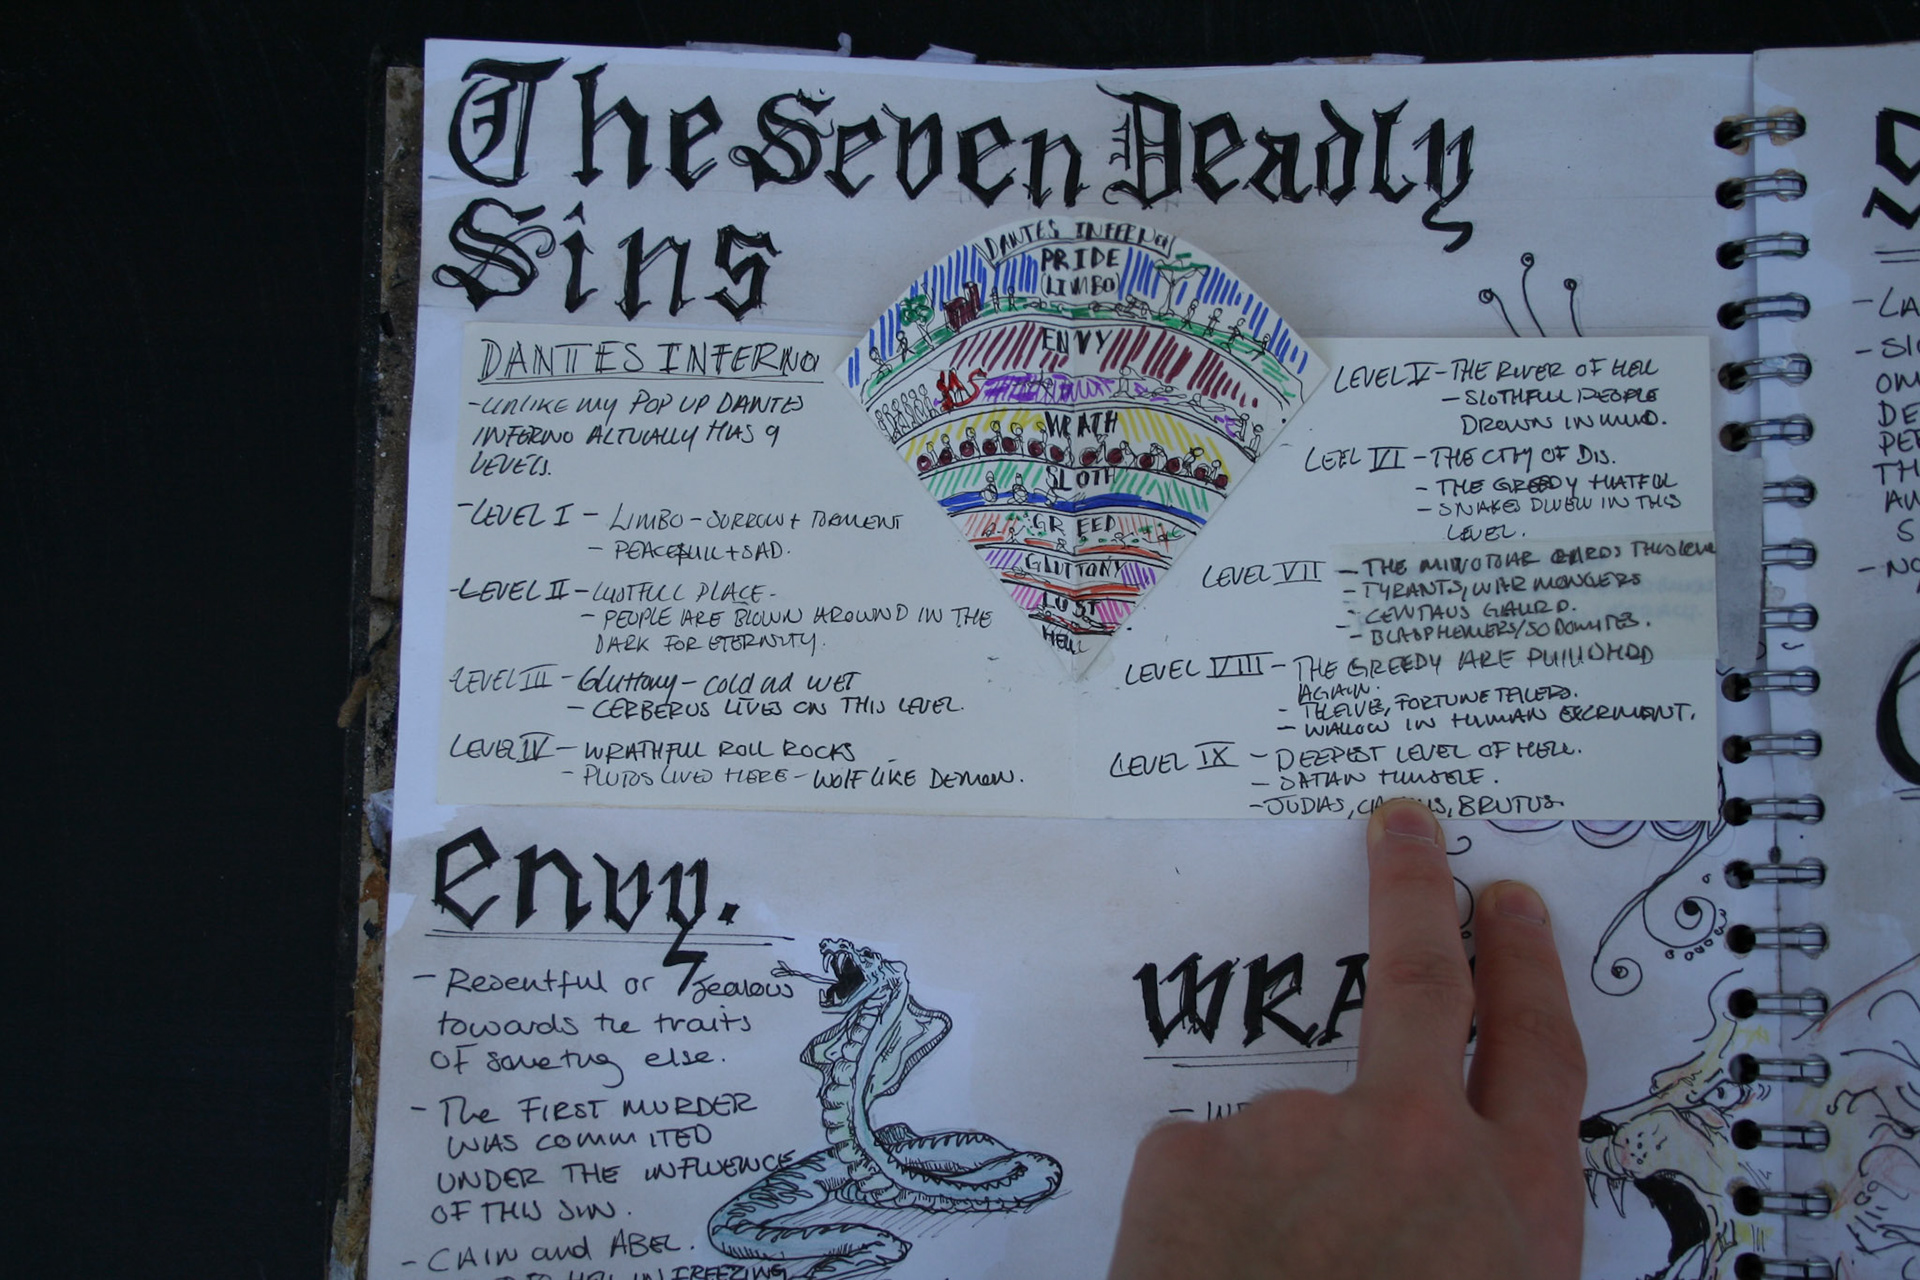 The Seven Deadly
Sins
DANTES INFERNO
PRIDE
(LIMBO)
ENVY
WRATH
SLOTH
GREED
GLUTTONY
LUST
HELL
DANTES INFERNO
-UNLIKE MY POP UP DANTES
INFERNO ACTUALLY HAS 9
LEVELS.
-LEVEL I - LIMBO - SORROW + TORMENT
- PEACEFULL + SAD.
-LEVEL II - LUSTFULL PLACE-
- PEOPLE ARE BLOWN AROUND IN THE
DARK FOR ETERNITY.
-LEVEL III - Gluttony - cold ad WET
- CERBERUS LIVES ON THIS LEVEL.
LEVEL IV - WRATHFULL ROLL ROCKS
- PLUTOS LIVES HERE - WOLF LIKE DEMON.
LEVEL V - THE RIVER OF HELL
- SLOTHFULL PEOPLE
DROWN IN MUD.
LEEL VI - THE CITY OF DIS.
- THE GREEDY + HATFUL
- SNAKES DWELL IN THIS
LEVEL.
LEVEL VII - THE MINOTUAR GARDS THIS LEVEL
- TYRANTS, WAR MONGERS
- CENTAUS GAURD.
- BLASPHEMERS/SODOMITES.
LEVEL VIII - THE GREEDY ARE PUNISHED
AGAIN.
- THEIVES, FORTUNE TELLERS.
- WALLOW IN HUMAN EXCRIMENT.
LEVEL IX - DEEPEST LEVEL OF HELL.
- SATAN HIMSELF.
- JUDIAS, BRUTUS.
envy.
- Resentful or Jealous
towards the traits
OF someting else.
- The FIRST MURDER
WAS COMMITED
UNDER THE INFLUENCE
OF THIS SIN.
- CAIN and ABEL.
HELL IN FREEZING
WRA